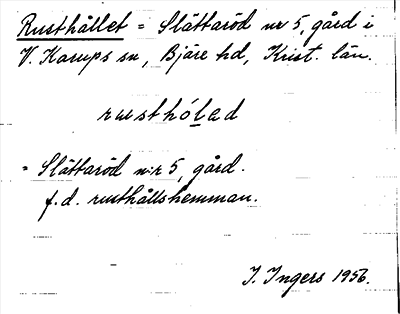 Rusthållet = Slättaröd nr 5, gård i
V. Karups sn, Bjäre hd, Krist. län.
rusthólad
= Slättaröd n:r 5, gård.
f.d. rusthållshemman.
I. Ingers 1956.